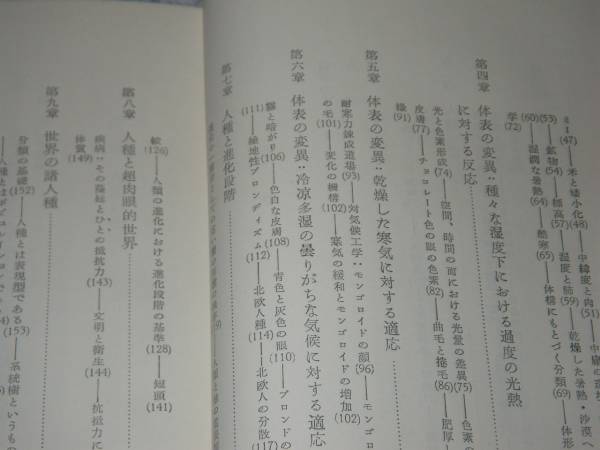 ミー(47)――米と矮小化(48)――中緯度と肉(51)――中庸の
(53)――鉱物(54)――極高(57)――湿度と肺(59)――乾燥した暑熱・沙漠へ
(60)――湿潤な暑熱(64)――酷寒(65)――体構にもとづく分類(69)――体形
学(72)
第四章 体表の変異:種々な湿度下における過度の光熱
に対する反応
光と色素形成(74)――空間、時間の面における光量の差異(75)――色素の
皮膚(77)――チョコレート色の眼の色素(82)――曲毛と捲毛(86)――肥厚し
(91)
第五章 体表の変異:乾燥した寒気に対する適応
耐寒力錬成道場(93)――対気候工学:モンゴロイドの顔(96)――モンゴ
の毛(101)――変化の機構(102)――寒気の緩和とモンゴロイドの増加(102)
第六章 体表の変異:冷涼多湿の曇りがちな気候に対する適応
霧と暗がり(106)――色白な皮膚(108)――青色と灰色の眼(110)――ブロンドの
(111)――極地性ブロンディズム(112)――北欧人種(114)――北欧人の分散(117)
第七章 人種と進化段階
較(126)――人類の進化における進化段階の基準(128)――短頭(141)
第八章 人種と超肉眼的世界
疾病:その蔓延とひとの抵抗力(143)――文明と衛生(144)――抗抵力に
体質(149)
第九章 世界の諸人種
分類の基礎(152)――人種とは表現型である(153)――系統樹というもの